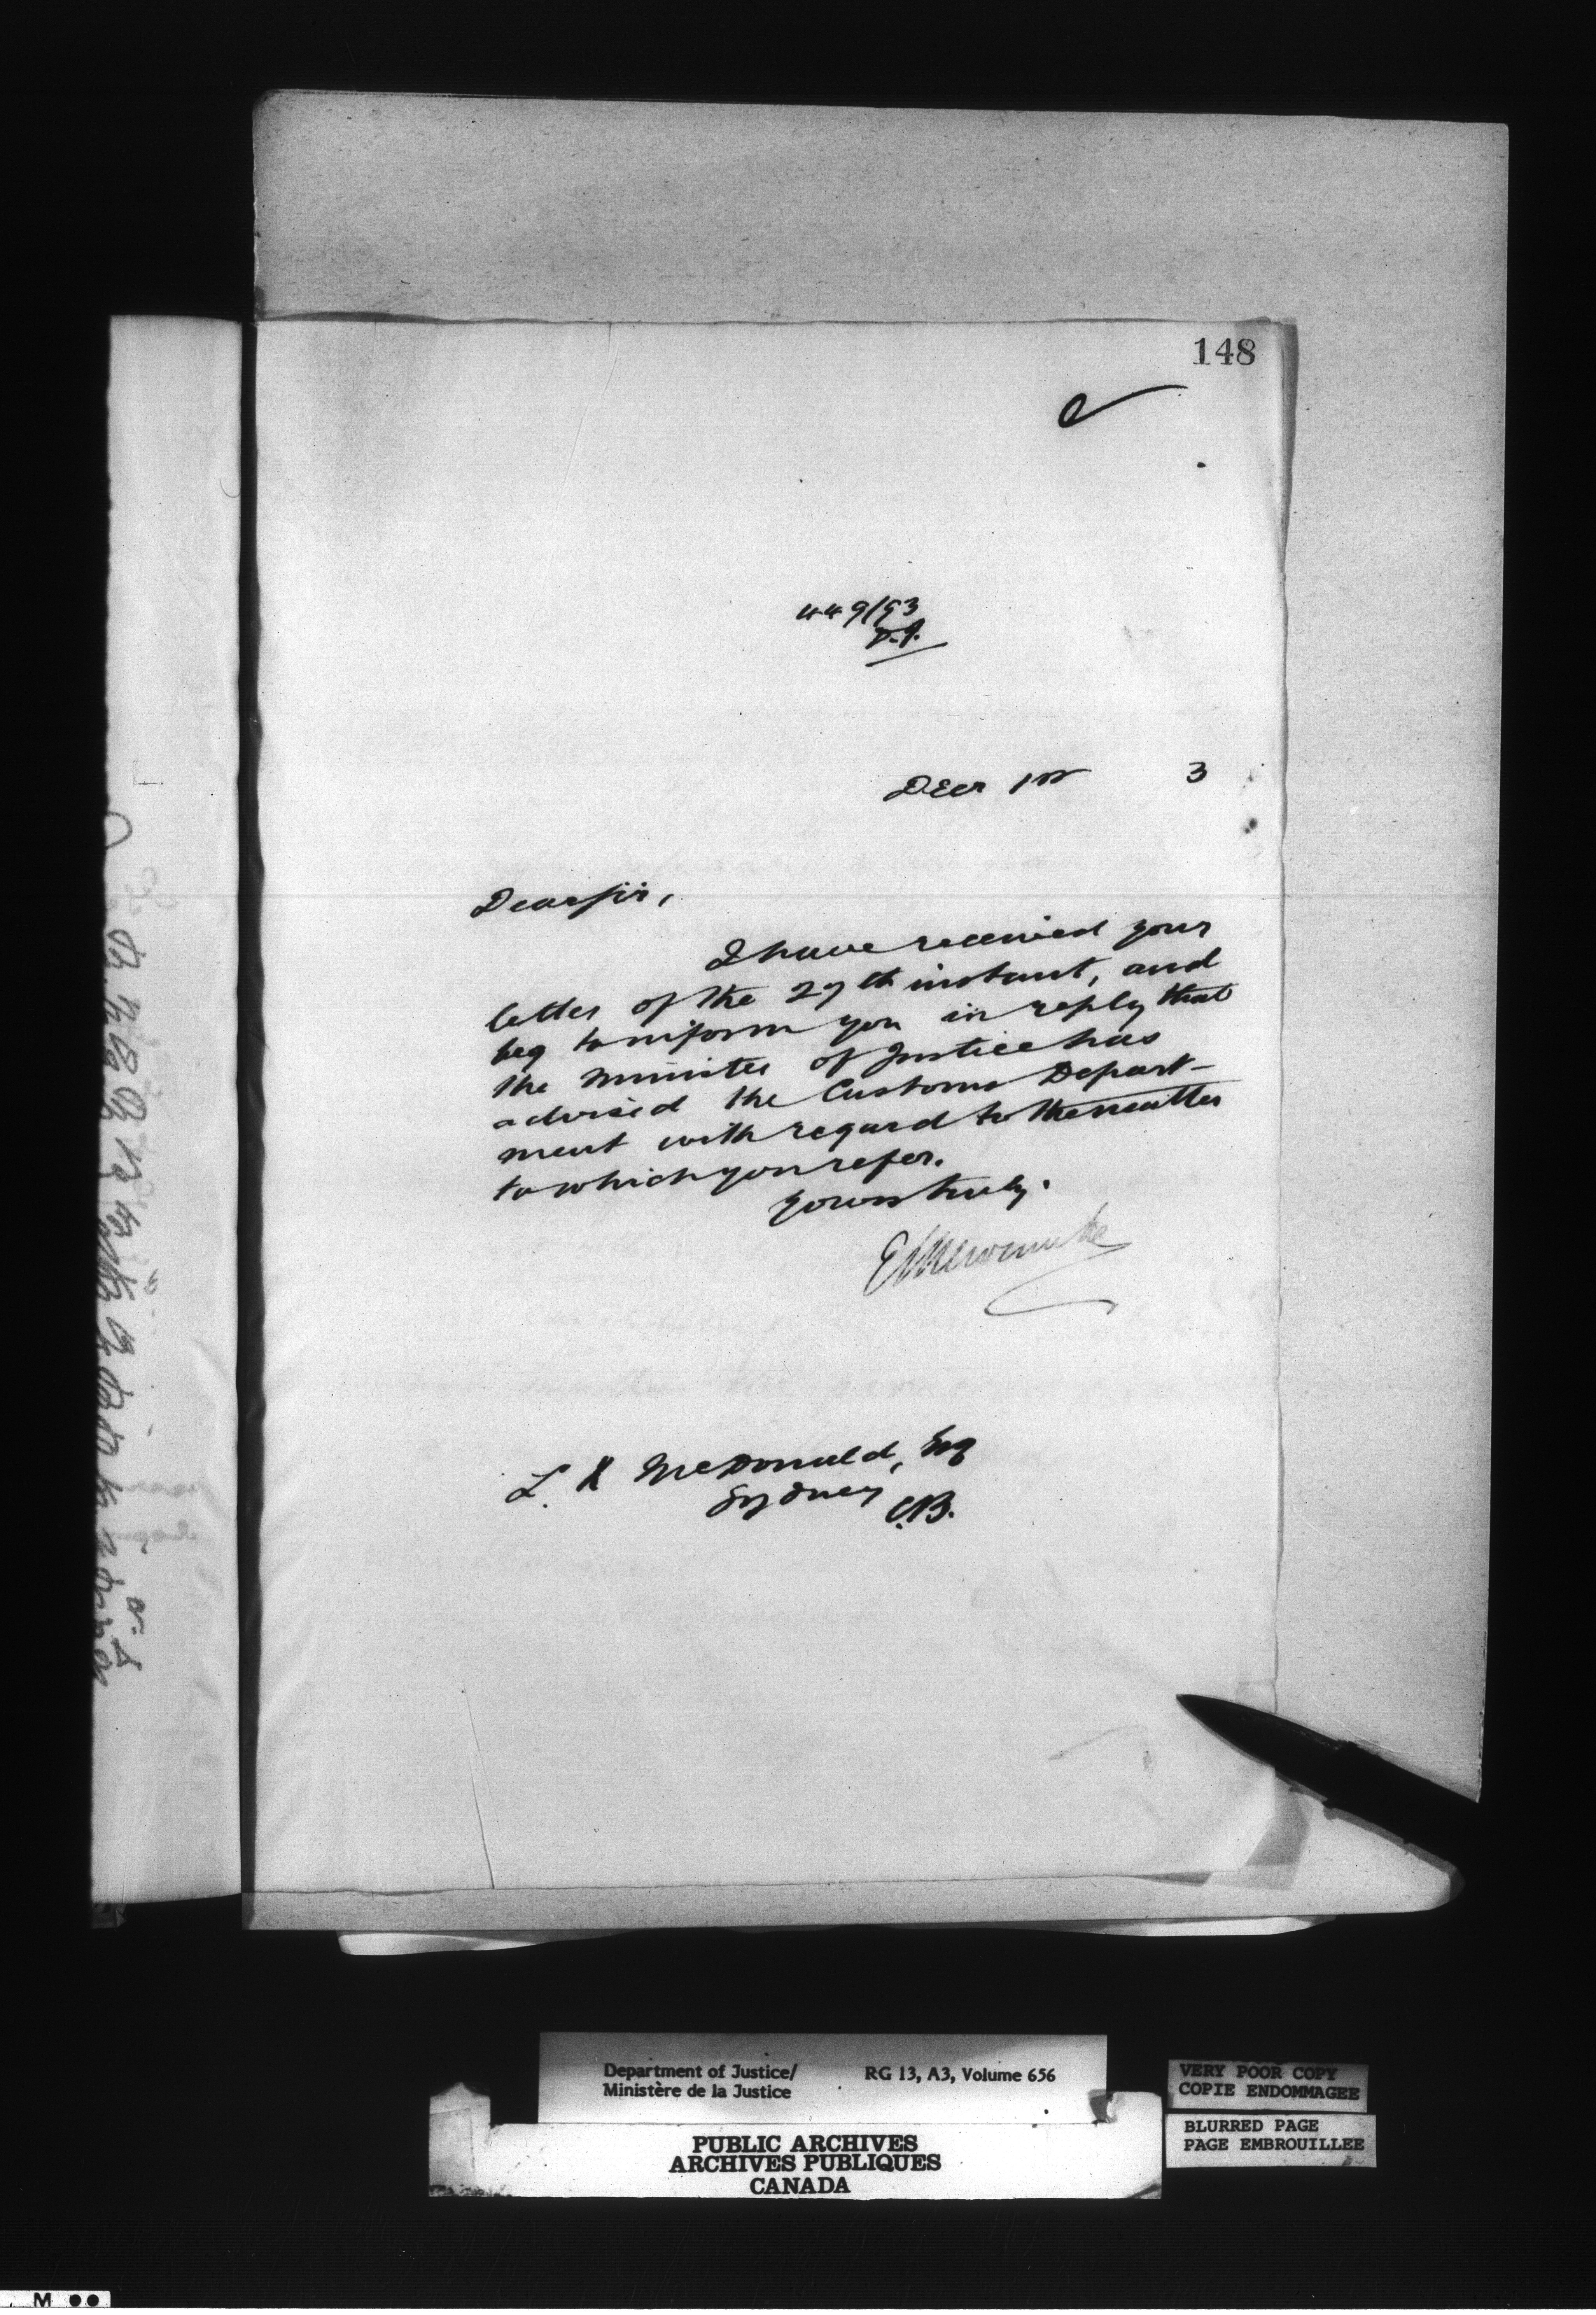 148
449/93
Decr 1st 3
Dear Sir,
I have received your
letter of the 27th instant, and
beg to inform you in reply that
the Minister of Justice has
advised the Customs Depart-
ment with regard to the matter
to which you refer.
Yours truly.
E L Newcombe
L. X McDonald, Esq
Sydney
C.B.
Department of Justice/ RG 13, A3, Volume 656
Ministère de la Justice
PUBLIC ARCHIVES
ARCHIVES PUBLIQUES
CANADA
VERY POOR COPY
COPIE ENDOMMAGEE
BLURRED PAGE
PAGE EMBROUILLEE
M